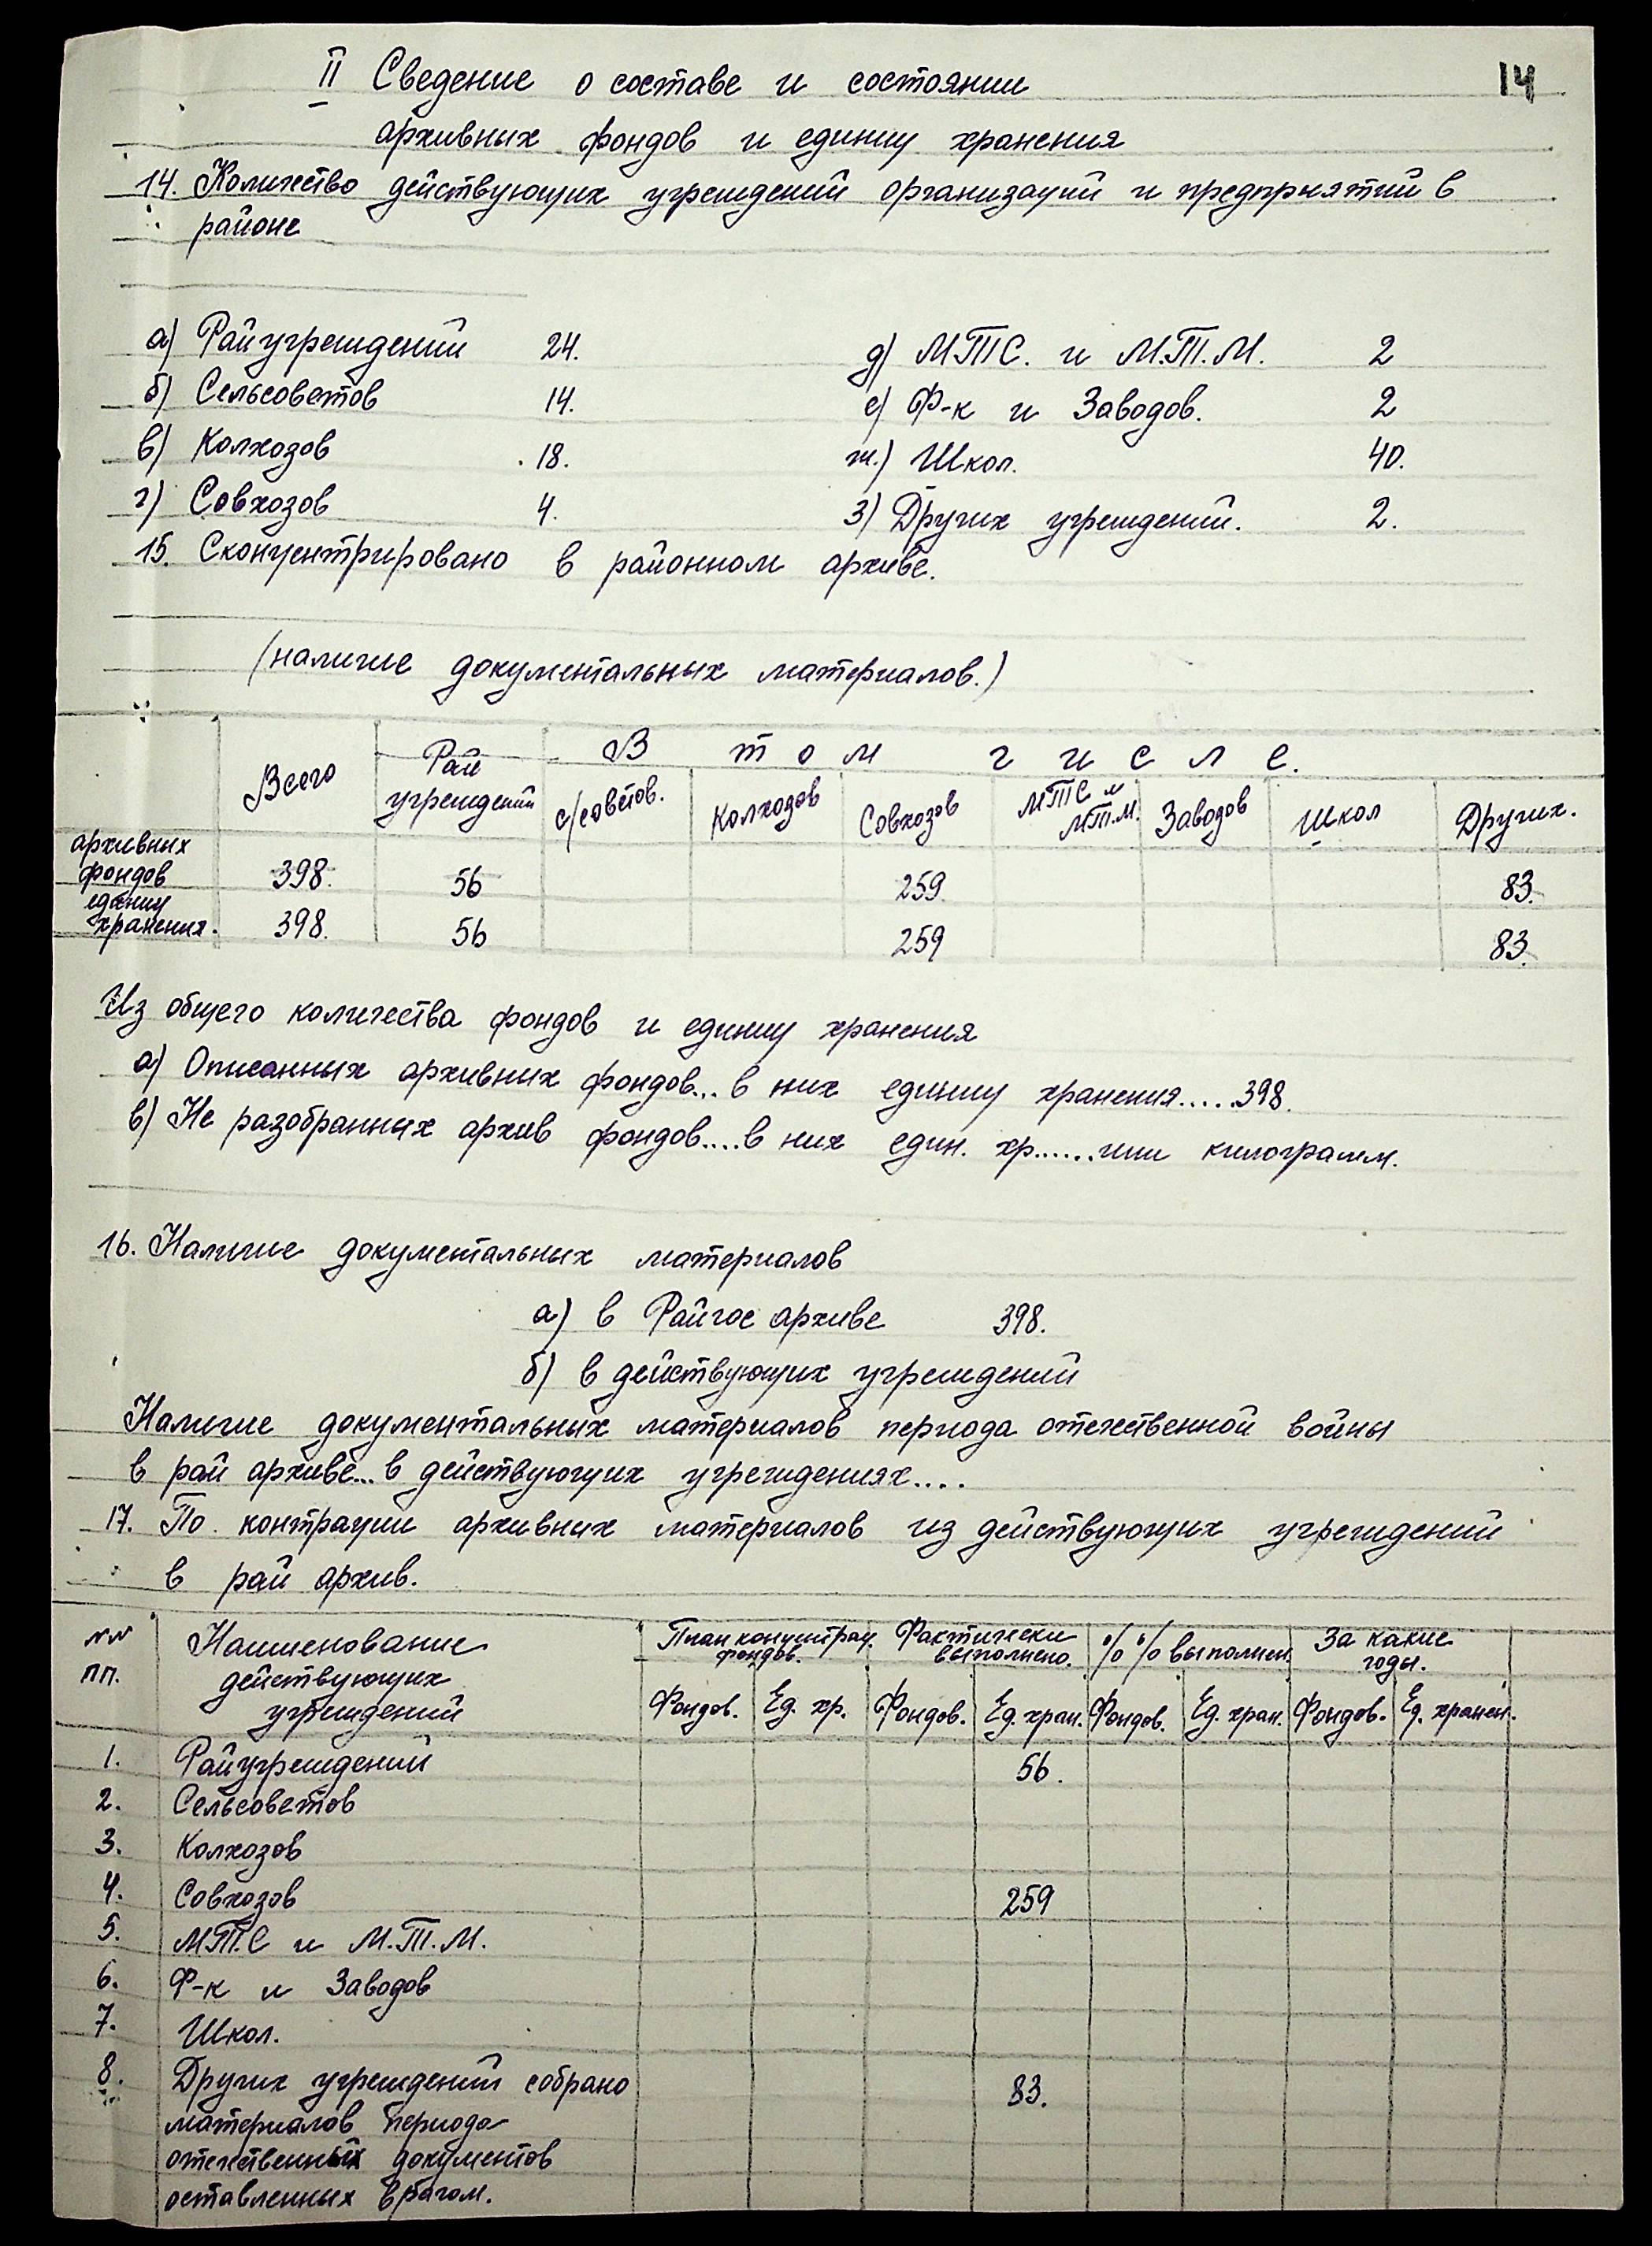 14
II Сведение о составе и состоянии
архивных фондов и единиц хранения
14. Количество действующих учреждений организаций и предприятий в
районе
а) Райучреждений 24. д) МТС. и М.Т.М. 2
б) Сельсоветов 14. е) Ф-к и Заводов. 2
в) Колхозов 18. ж.) Школ. 40.
г) Совхозов 4. з) Других учреждений. 2.
15. Сконцентрировано в районном архиве.
(наличие документальных материалов.)
Всего Рай учреждений В том числе.
с/советов. Колхозов Совхозов МТС и МТ.М. Заводов Школ Других.
архивных
фондов 398. 56 259. 83.
единиц
хранения. 398. 56 259 83.
Из общего количества фондов и единиц хранения
а) Описанных архивних фондов... в них единиц хранения.....398.
в) Не разобранных архив фондов....в них един. хр......или килограмм.
16. Наличие документальных материалов
а) в Райгос архиве 398.
б) в действующих учреждений
Наличие документальных материалов периода отечественной войны
в рай архиве... в действующих учреждениях....
17. По контрации архивних материалов из действующих учреждений
в рай архив.
№№ пп. Наименование действующих учреждений План концентрац. фондов. Фактически выполнено. %% выполнен. За какие годы.
Фондов. Ед. хр. Фондов. Ед. хран. Фондов. Ед. хран. Фондов. Ед. хранен.
1. Райучреждений 56.
2. Сельсоветов
3. Колхозов
4. Совхозов 259
5. МТ.С и М.Т.М.
6. Ф-к и Заводов
7. Школ.
8. Других учреждений собрано 83.
материалов периода
отечественных документов
оставленных врагом.